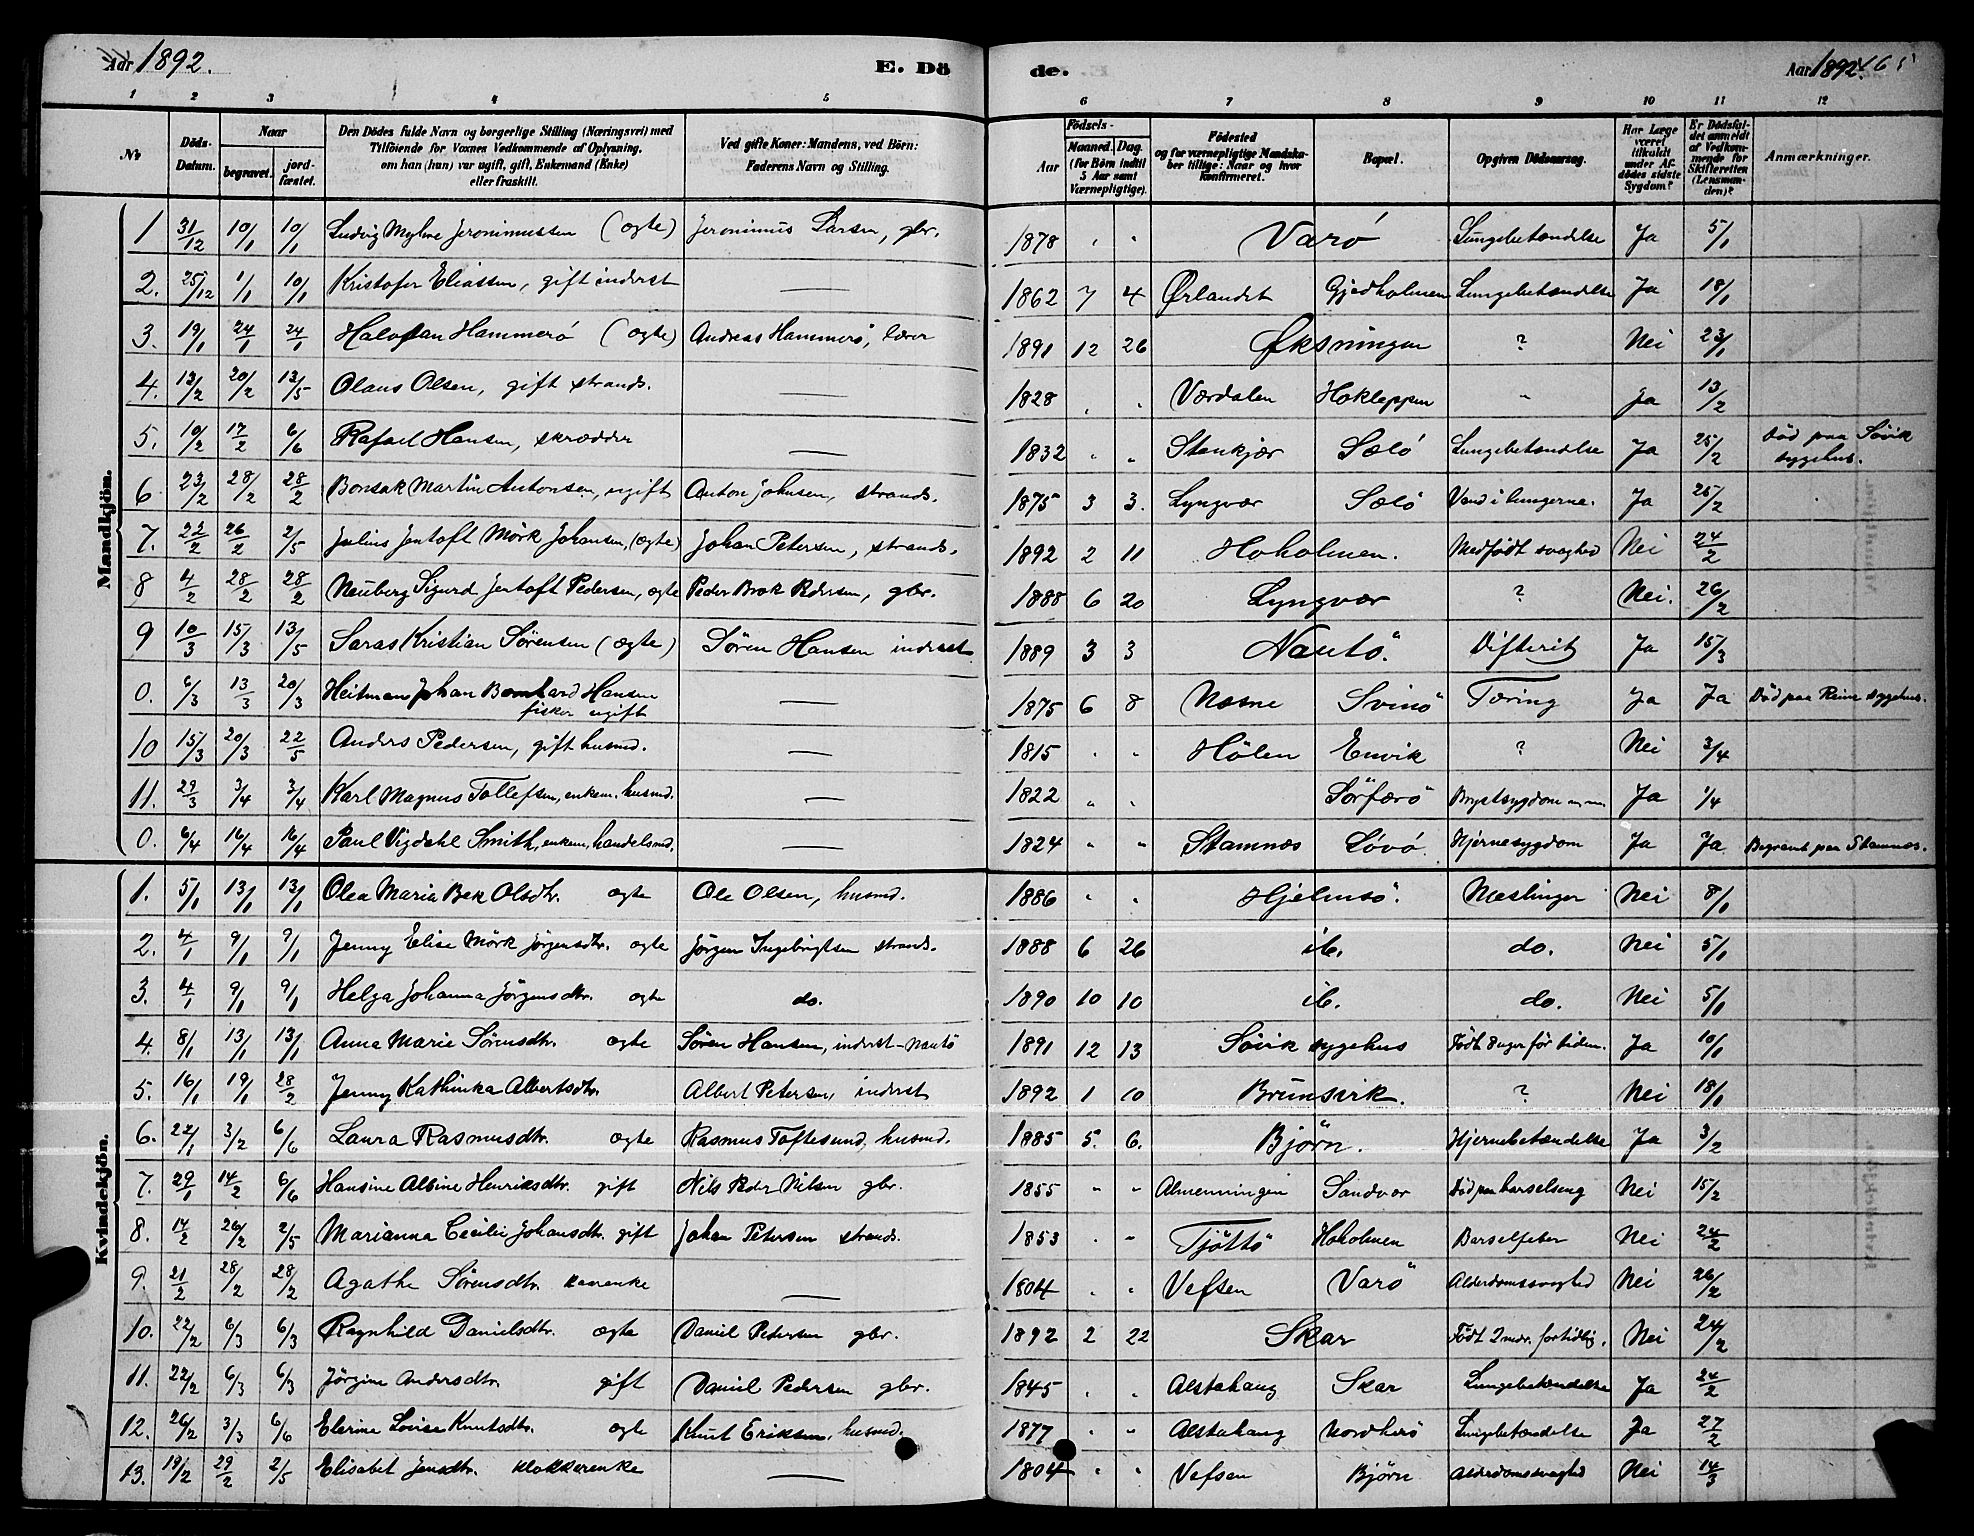 Aar 1892. E. Dö de. Aar 1892. 165
1 2 3 4 5 6 7 8 9 10 11 12
No Döds-Datum. Naar begravet. jordfæstet. Den Dödes fulde Navn og borgerlige Stilling (Næringsvei) med Tilföiende for Voxnes Vedkommende af Oplysning, om han (hun) var ugift, gift, Enkemand (Enke) eller fraskilt. Ved gifte Koner: Mandens, ved Börn: Faderens Navn og Stilling. Födsels- Aar Maaned. Dag. (for Börn indtil 5 Aar samt Værnepligtige). Födested og for værnepligtige Mandskaber tillige: Naar og hvor konfirmeret. Bopæl. Opgiven Dödsaarsag. Har Læge været tilkaldt under Afdödes sidste Sygdom? Er Dödsfaldet anmeldt af Vedkommende for Skifteretten (Lensmanden)? Anmærkninger.
Mandkjön.
1 31/12 10/1 10/1 Ludvig Myhre Jeronimussen (ægte) Jeronimus Larsen, gbr. 1878 " " Varö Lungebetændelse Ja 5/1
2. 25/12 1/1 10/1 Kristofer Eliassen, gift inderst — 1862 7 4 Ørlandet Gjedholmen Lungebetændelse Ja 18/1
3. 19/1 24/1 24/1 Halvdan Hammerö (ægte) Andreas Hammerö, lærer 1891 12 26 Øksningen ? Nei 23/1
4. 13/2 20/2 13/5 Olaus Olsen, gift strands. — 1828 " " Værdalen Hokleppen " Ja 13/2
5. 10/2 17/2 6/6 Rafael Hansen, skrædder — 1832 " " Stenkjær Sælö Lungebetændelse Ja 25/2 Död paa Sövik sygehus.
6 23/2 28/2 28/2 Bonsak Martin Antonsen, ugift Anton Johnsen, strands. 1875 3 3. Lyngvær Sælö Vand i lungerne. Ja 25/2
7. 22/2 26/2 2/5 Julius Jentoft Mörk Johansen, (ægte) Johan Petersen, strands. 1892 2 11 Hoholmen. Medfødt svaghed Nei 24/2
8 4/2 28/2 28/2 Neuberg Sigurd Jentoft Pedersen, ægte Peder Brok Pedersen, gbr. 1888 6 20 Lyngvær ? Nei. 26/2
9 10/3 15/3 13/5 Saras Kristian Sørensen (ægte) Søren Hansen inderst 1889 3 3 Nautö. Difterit Ja 15/3
0. 6/3 13/3 20/3 Heitman Johan Bernhard Hansen fisker ugift — 1875 6 8 Næsne Svinö Tæring Ja Ja Död paa Reine sygehus.
10 15/3 20/3 22/5 Anders Pedersen, gift husmd. — 1815 " " Hölen Envik ? Nei 3/4
11. 29/3 3/4 3/4 Karl Magnus Tollefsen, enkem. husmd. — 1822 " " Sörfærö Brystsygdom m.m. Ja 1/4
0. 6/4 16/4 16/4 Paul Vigdahl Smith, enkem, handelsmd. — 1824 " " Stamnæs Lövö Hjernesygdom Ja Ja Begravet paa Stamnæs.
Kvindekjön.
1. 5/1 13/1 13/1 Olea Maria Bek Olsdtr. ægte Ole Olsen, husmd. 1886 " " Hjelmsö. Meslinger Nei 8/1
2. 4/1 9/1 9/1 Jenny Elise Mörk Jörgensdtr. ægte Jörgen Ingebrigtsen strands. 1888 6 26 ib. do. Nei 5/1
3. 4/1 9/1 9/1 Helga Johanna Jörgensdtr. ægte do. 1890 10 10 ib. do. Nei 5/1
4. 8/1 13/1 13/1 Anna Marie Sørensdtr. ægte Søren Hansen, inderst-Nautö 1891 12 13 Sövik sygehus Födt 8 uger för tiden. Ja 10/1
5. 16/1 19/1 28/2 Jenny Kathinka Albertsdtr. Albert Petersen, inderst 1892 1 10 Brunsvik. ? Nei 18/1
6. 22/1 3/2 6/6 Laura Rasmusdtr. ægte Rasmus Toftesund, husmd. 1885 5. 6. Björn. Hjernebetændelse Ja 3/2
7. 29/1 14/2 6/6 Hansine Albine Henriksdtr. gift Nils Peder Nilsen gbr. 1855 " " Almenningen Sandvær Död paa barselseng Nei 15/2
8. 14/2 26/2 2/5 Marianna Cecilie Johansdtr. gift Johan Petersen strands. 1853 " " Tjöttö Hoholmen Barselfeber Nei 24/2
9. 21/2 28/2 28/2 Agathe Sørensdtr. kaarenke — 1804 " " Vefsen Varö Alderdomssvaghed Nei 26/2
10. 22/2 6/3 6/3 Ragnhild Danielsdtr. ægte Daniel Petersen gbr. 1892 2 22 Skar Födt 2 mdr. fortidlig. Nei 24/2
11. 22/2 6/3 6/3 Jörgine Andersdtr. gift Daniel Pedersen gbr. 1845 " " Alstahaug Skar Lungebetændelse Ja 24/2
12. 26/2 3/3 6/6 Elerine Lovise Knutsdtr. ægte Knut Eriksen, husmd. 1877 " " Alstahaug Nordherö Lungebetændelse Ja 27/2
13. 19/2 29/2 2/5 Elisabet Jensdtr. klokkerenke — 1804 " " Vefsen Björn Alderdomssvaghed Nei 14/3